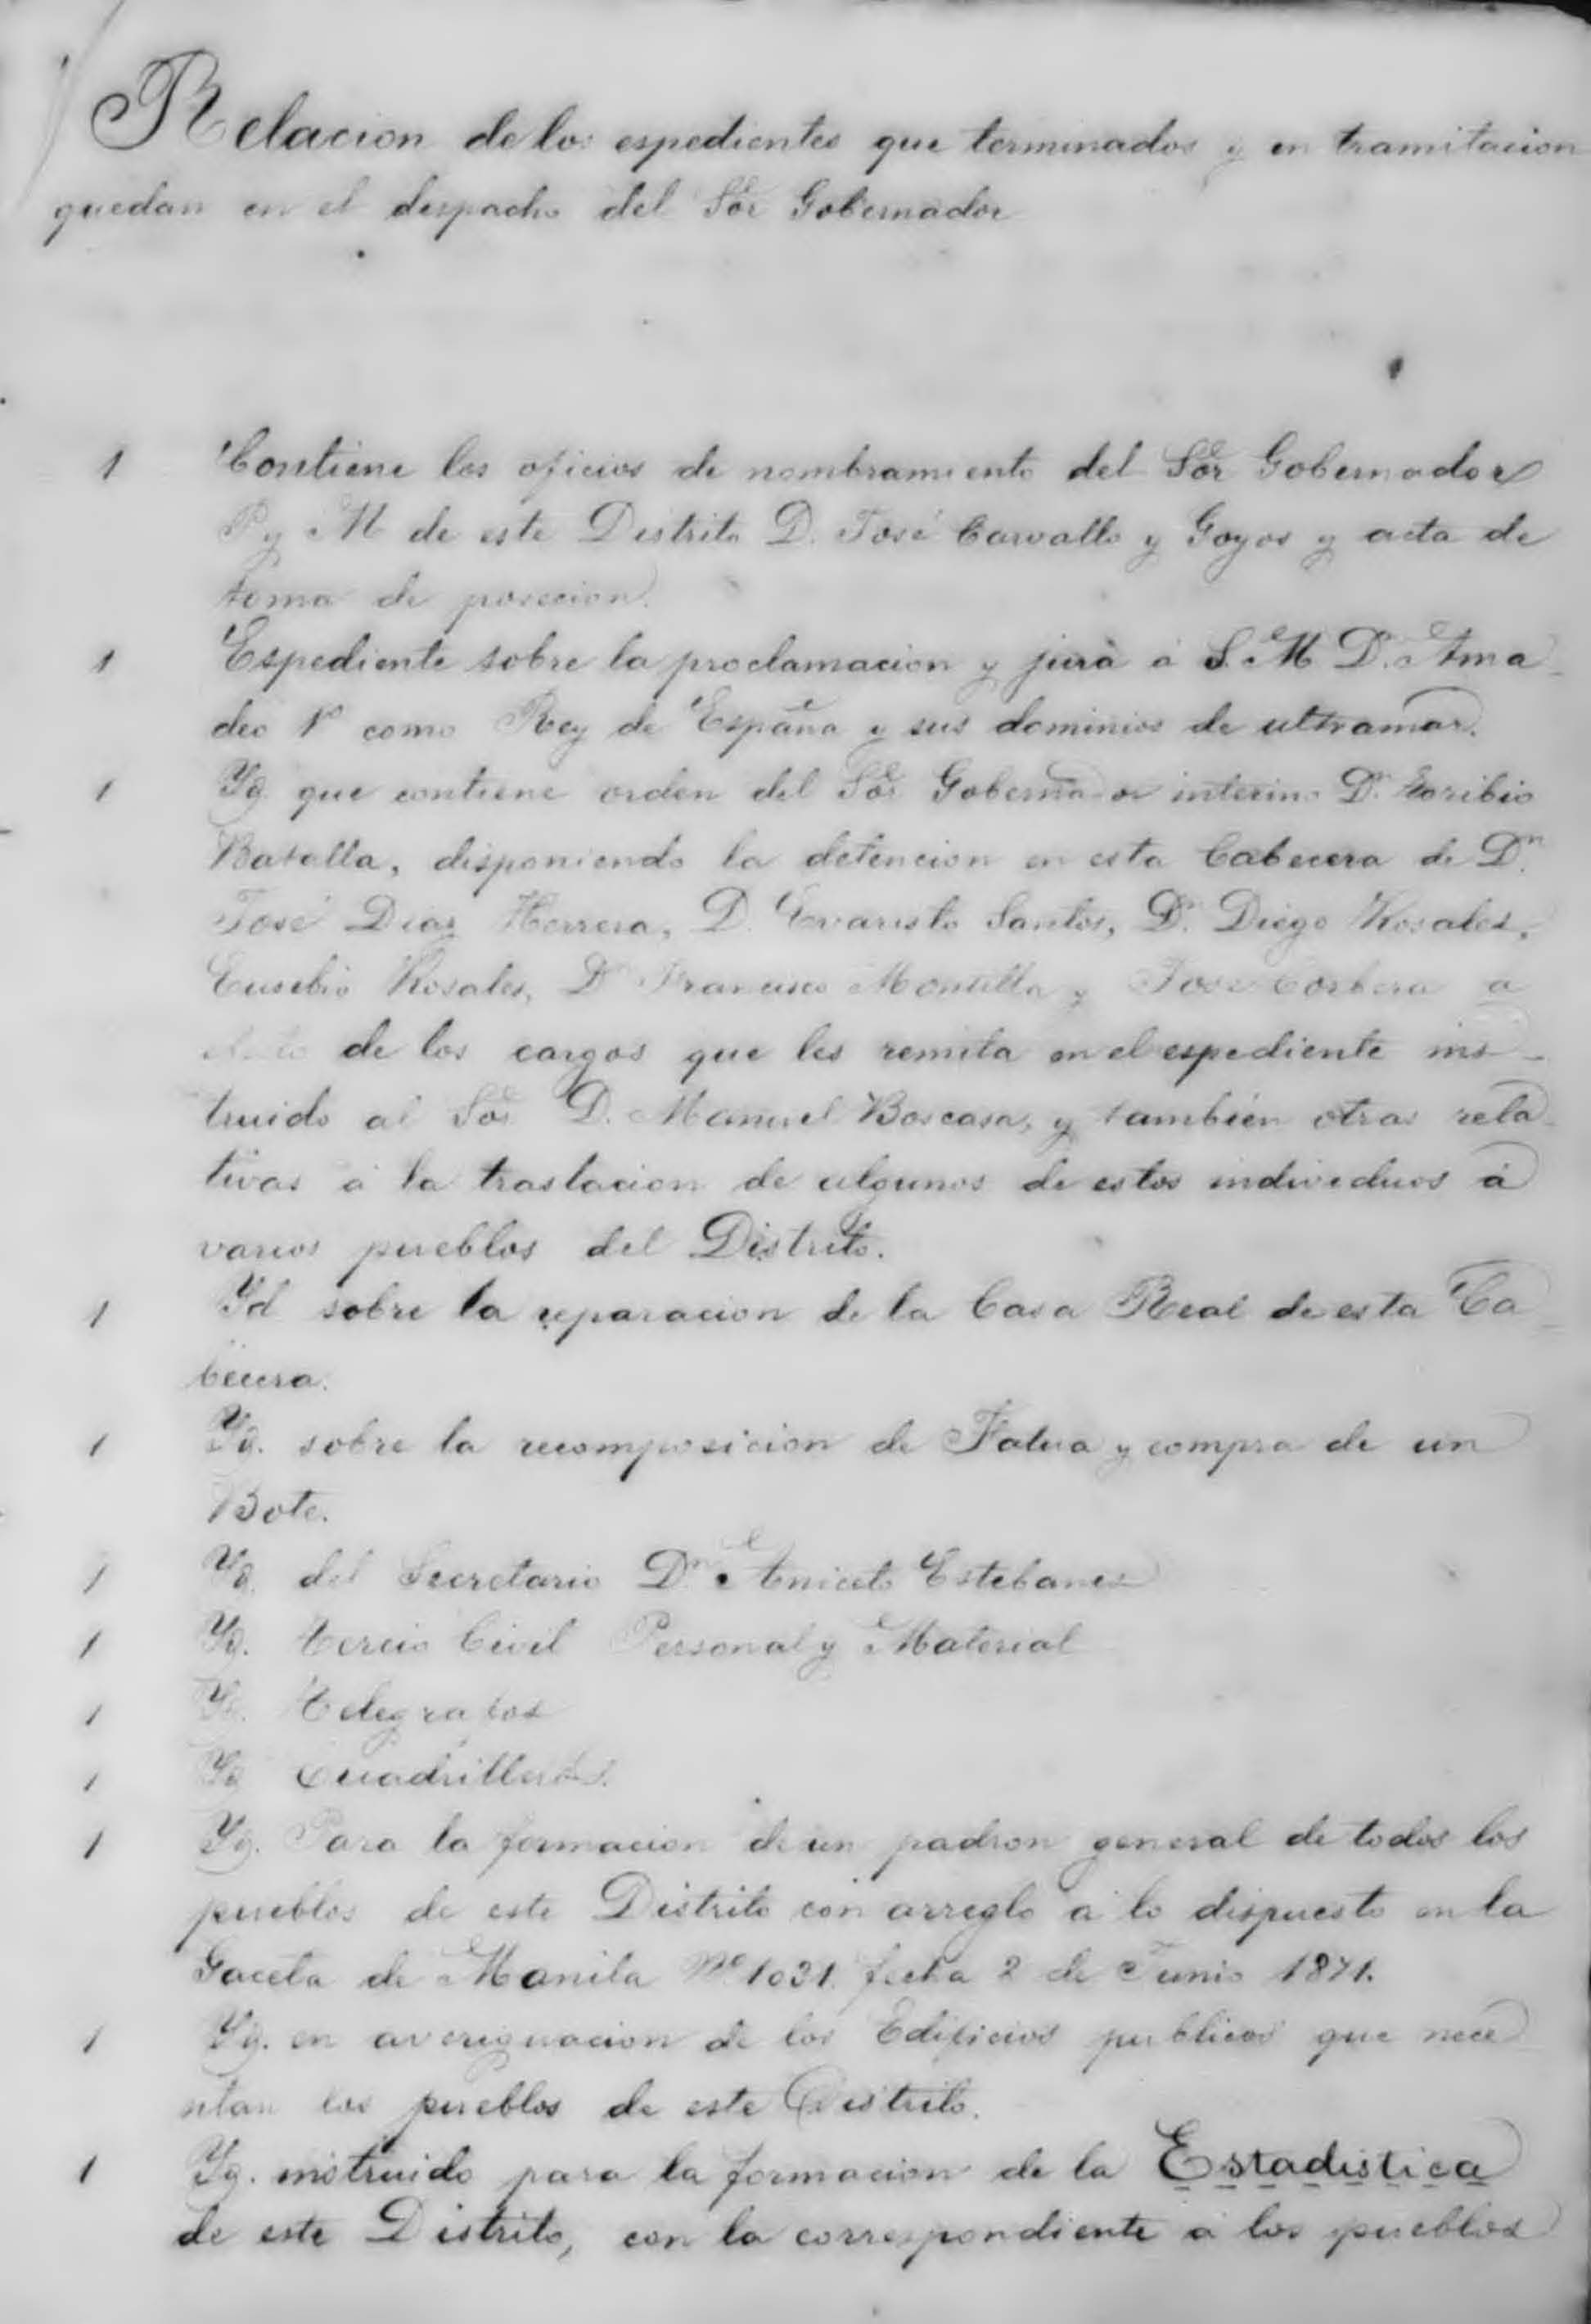 Relacion de los espedientes que terminados y en tramitacion
quedan en el despacho del Sor Gobernador
1 Contiene los oficios de nombramiento del Sor Gobernador
P y M de este Distrito D. José Carvallo y Goyos y acta de
toma de posecion.
1 Espediente sobre la proclamacion y jura á S. M D. Ama-
deo 1º como Rey de España y sus dominios de ultramar.
1 Yd que contiene orden del Sor Gobernador interino Dn Toribio
Batalla, disponiendo la detencion en esta Cabecera de Dn
José Diaz Herrera, D. Evaristo Santos, Dn Diego Rosales,
Eusebio Rosales, Dn Francisco Montilla y José Corbera a
de los cargos que les remita en el espediente ins-
truido al Sor D. Manuel Boscasa, y tambien otras rela-
tivas á la traslacion de algunos de estos individuos á
varios pueblos del Distrito.
1 Yd sobre la reparacion de la Casa Real de esta Ca-
becera.
1 Yd. sobre la recomposicion de Falua y compra de un
Bote.
1 Yd del Secretario Dn Aniceto Estebanez
1 Yd. Tercio Civil Personal y Material
1 Yd. Telegrafos
1 Yd Cuadrilleros.
1 Yd. Para la formacion de un padron general de todos los
pueblos de este Distrito con arreglo a lo dispuesto en la
Gaceta de Manila Nº 1031. fecha 2 de Junio 1871.
1 Yd. en averiguacion de los Edificios publicos que nece-
sitan los pueblos de este Distrito.
1 Yd. instruido para la formacion de la Estadistica
de este Distrito, con la correspondiente á los pueblos